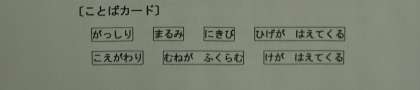 〔ことばカード〕
がっしり まるみ にきび ひげが はえてくる
こえがわり むねが ふくらむ けが はえてくる